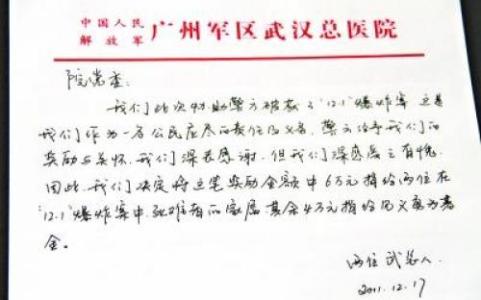 中国人民
解放军 广州军区武汉总医院
院党委:
我们此次协助警方破获了“12.1”爆炸案 这是
我们作为一名公民应尽的责任及义务, 警方给予我们的
奖励与关怀, 我们深表感谢, 但我们深感受之有愧,
因此, 我们决定将这笔奖励金额中6万元捐给两位在
“12.1”爆炸案中, 死难者的家属, 其余4万元捐给见义勇为基
金。
两位武总人
2011.12.17